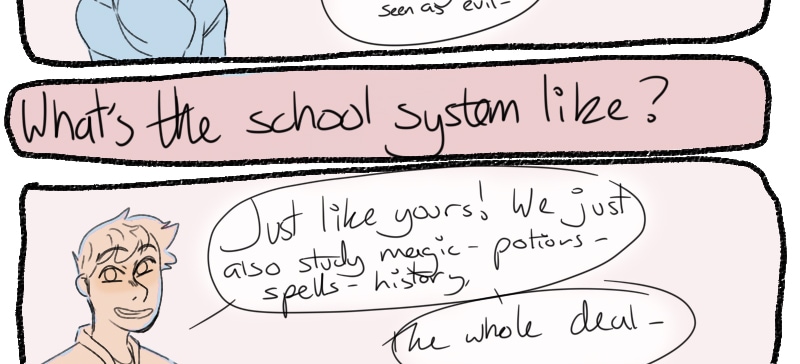 seen as evil-
What's the school system like?
Just like yours! We just
also study magic - potions -
spells - history,
the whole deal -